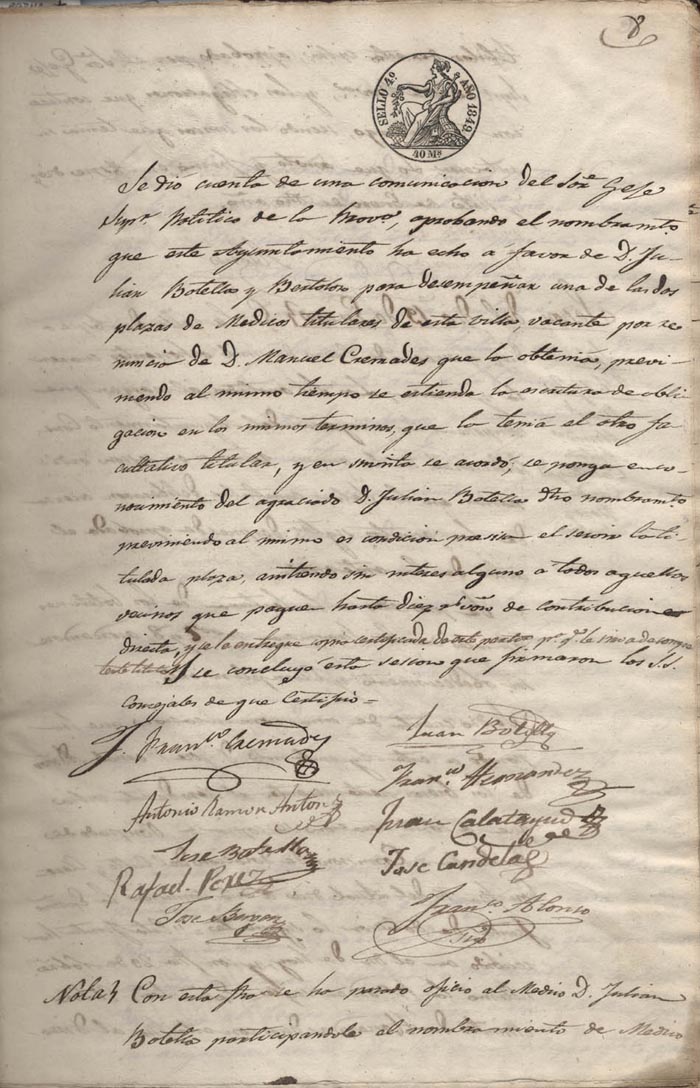 8
SELLO 4º AÑO 1849
40 Ms
Se dió cuenta de una comunicacion del Sor. Gefe
Supr. Politico de la Prova., aprobando el nombramto.
que este Ayuntamiento ha echo á favor de D. Ju-
lian Botella y Bertolo para desempeñar una de las dos
plazas de Medicos titulares de esta villa, vacante por re
nuncia de D. Manuel Cremades que la obtenia, previ-
niendo al mimo tiempo se estienda la escritura de obli
gacion en los mimos terminos, que la tenia el otro fa
cultativo titular, y en se acordó, se ponga en co-
nocimiento del agraciado D. Julian Botella dho nombramto.
previniendo al mimo es condicion presisa el servir la ti
tulada plaza, asistiendo sin interes alguno á todos aquellos
vecinos que paguen hasta diez rs. von. de contribucion
directa, y se le entregue copia certificada de este particu pa. qe. le sirva de
y se concluyó esta sesion que firmaron los S.S.
Concejales de que Certifico =
J. Franco. Cremades
Juan Botella
Franco. Hernandez
Antonio Ramon Anton
Juan Calatayud
Jose Botella
Jose Candela
Rafael Perez
Franco. Alonso
Jose
Srio
Nota Con esta fha se ha pasado oficio al Medico D. Julian
Botella participandole el nombramiento de Medico